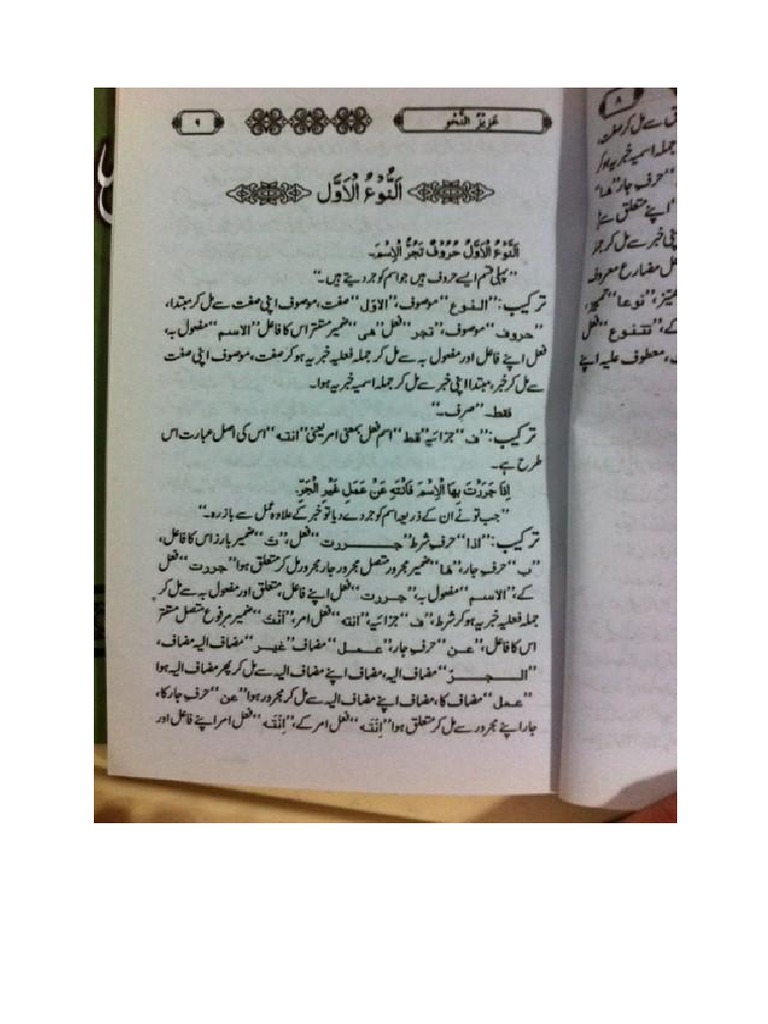 عزیز النحو
۹
اَلنَّوْعُ الْاَوَّل
اَلنَّوْعُ الْاَوَّلُ حُرُوْفٌ تَجُرُّ الْاِسْمَ۔
”پہلی قسم ایسے حروف ہیں جو اسم کو جر دیتے ہیں۔“
ترکیب: ”النوع“ موصوف، ”الاول“ صفت، موصوف اپنی صفت سے مل کر مبتدا،
”حروف“ موصوف، ”تجر“ فعل ”ھی“ ضمیر مستتر اس کا فاعل ”الاسم“ مفعول بہ،
فعل اپنے فاعل اور مفعول بہ سے مل کر جملہ فعلیہ خبریہ ہو کر صفت، موصوف اپنی صفت
سے مل کر خبر، مبتدا اپنی خبر سے مل کر جملہ اسمیہ خبریہ ہوا۔
فقط۔ ”صرف۔“
ترکیب: ”ف“ جزائیہ ”قط“ اسم فعل بمعنی امر یعنی ”انته“ اس کی اصل عبارت اس
طرح ہے۔
اِذَا جَرَرْتَ بِهَا الْاِسْمَ فَانْتَهِ عَنْ عَمَلِ غَيْرِ الْجَرِّ۔
”جب تو نے ان کے ذریعہ اسم کو جر دے دیا تو خبر کے علاوہ عمل سے باز رہ۔“
ترکیب: ”اذا“ حرف شرط ”جررت“ فعل، ”ت“ ضمیر بارز اس کا فاعل،
”ب“ حرف جار، ”ها“ ضمیر مجرور متصل مجرور جار مجرور مل کر متعلق ہوا ”جررت“ فعل
کے، ”الاسم“ مفعول بہ، ”جررت“ فعل اپنے فاعل، متعلق اور مفعول بہ سے مل کر
جملہ فعلیہ خبریہ ہو کر شرط، ”ف“ جزائیہ، ”انته“ فعل امر، ”اَنْتَ“ ضمیر مرفوع متصل مستتر
اس کا فاعل، ”عن“ حرف جار، ”عمل“ مضاف ”غیر“ مضاف الیہ مضاف،
”الجرّ“ مضاف الیہ، مضاف اپنے مضاف الیہ سے مل کر پھر مضاف الیہ ہوا
”عمل“ مضاف کا، مضاف اپنے مضاف الیہ سے مل کر مجرور ہوا ”عن“ حرف جار کا،
جار اپنے مجرور سے مل کر متعلق ہوا ”اِنْتَهِ“ فعل امر کے، ”اِنْتَهِ“ فعل امر اپنے فاعل اور
۸
سے مل کر صفت،
جملہ اسمیہ خبریہ ہو کر
حرف جار ”ها“
اپنے متعلق سے
خبر سے مل کر جر
مضارع معروف
ممیز، ”نوعا“ تمیز،
کے، ”تتنوع“ فعل
، معطوف علیہ اپنے